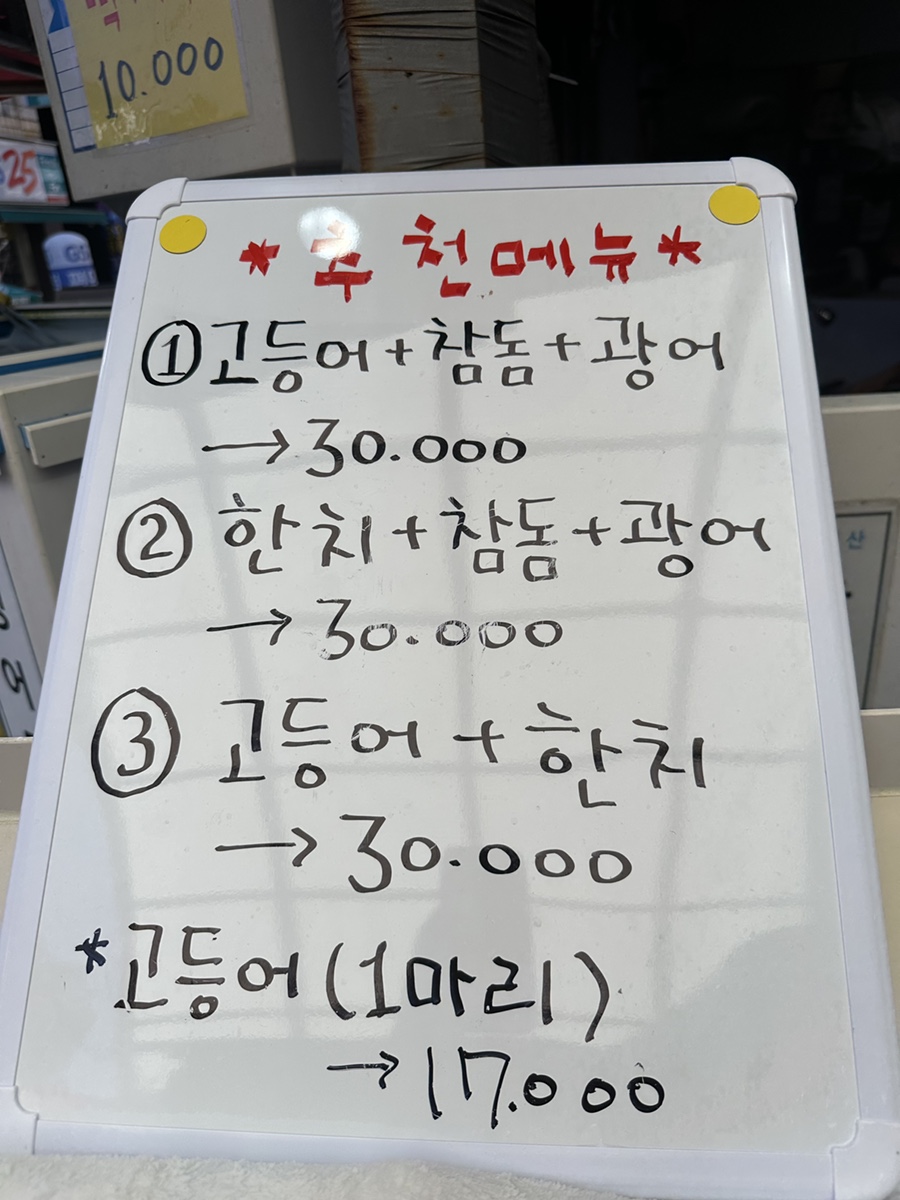 10.000
25
* 추천메뉴 *
① 고등어 + 참돔 + 광어
→ 30.000
② 한치 + 참돔 + 광어
→ 30.000
③ 고등어 + 한치
→ 30.000
* 고등어 (1마리)
→ 17.000
산
어